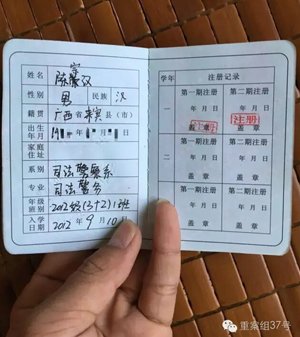 姓名 陈豪汉
性别 男 民族 汉
籍贯 广西省来宾县(市)
出生年月 19 年 月 日
家庭住址
系别 司法警察系
专业 司法警务
年级班别 2012级(3+2)1班
入学日期 2012年9月10日
学年 注册记录
第一期注册 第二期注册
一
年 月 日 年 月 日
盖 章 注册 盖 章
第一期注册 第二期注册
二
年 月 日 年 月 日
盖 章 盖 章
第一期注册 第二期注册
年 月 日 年 月 日
盖 章 盖 章
重案组37号